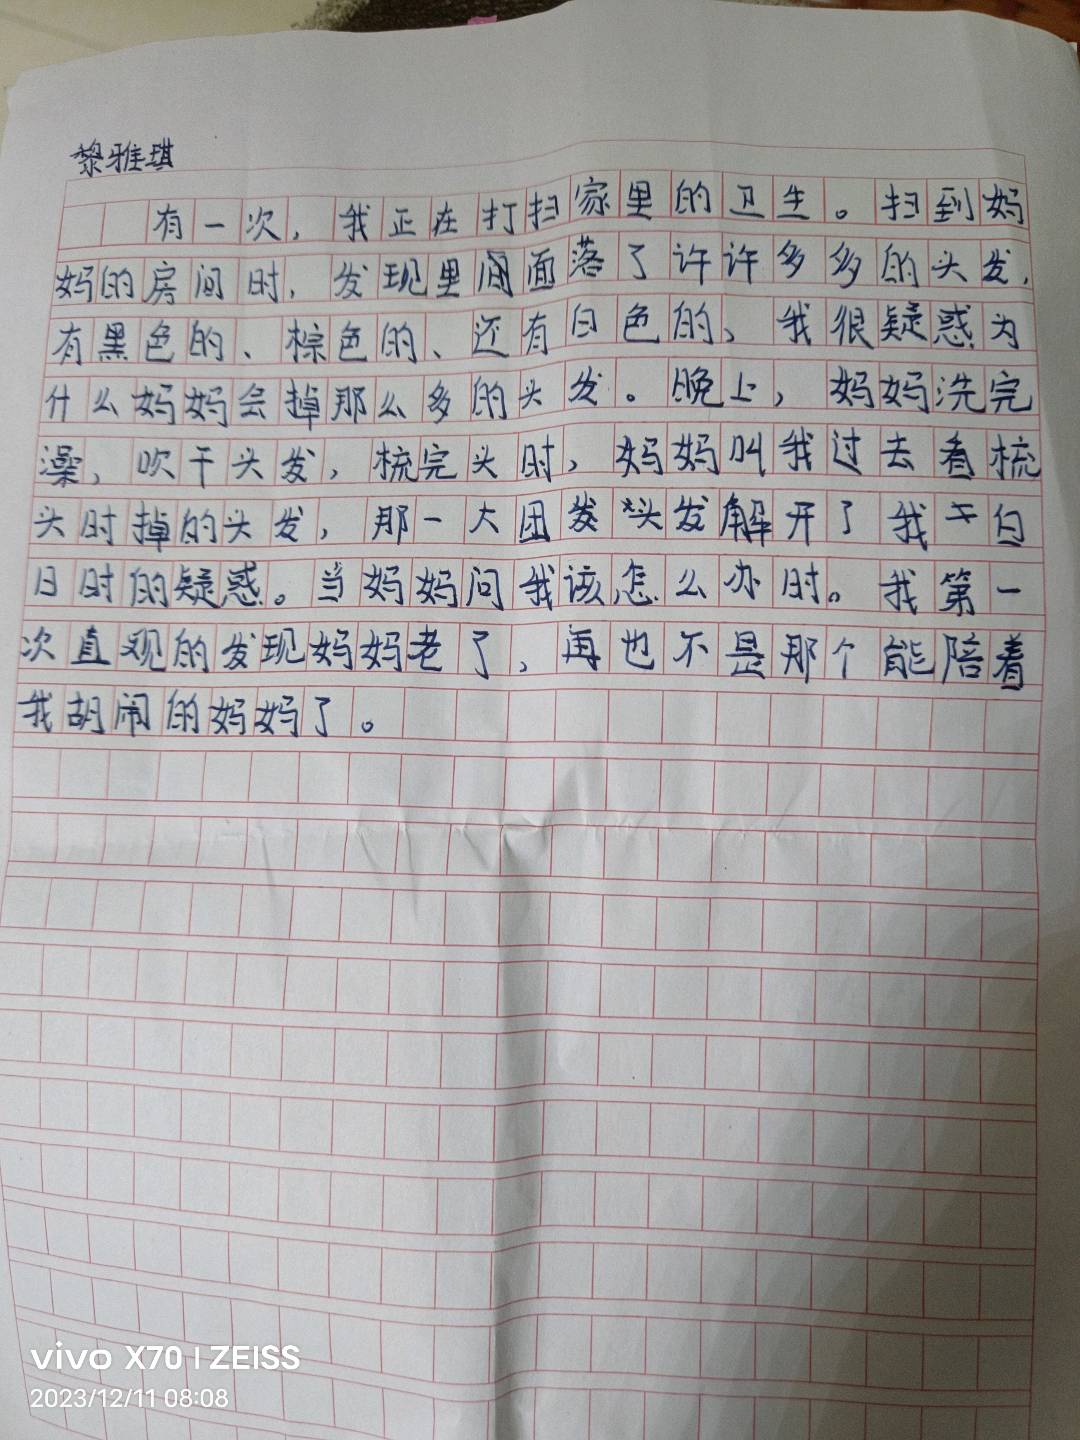 黎雅琪
有一次，我正在打扫家里的卫生。扫到妈
妈的房间时，发现里面落了许许多多的头发，
有黑色的、棕色的、还有白色的、我很疑惑为
什么妈妈会掉那么多的头发。晚上，妈妈洗完
澡，吹干头发，梳完头时，妈妈叫我过去看梳
头时掉的头发，那一大团发头发解开了我干白
日时的疑惑。当妈妈问我该怎么办时。我第一
次直观的发现妈妈老了，再也不是那个能陪着
我胡闹的妈妈了。
vivo X70 | ZEISS
2023/12/11 08:08